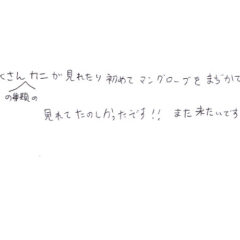 くさんカニが見れたり初めてマングローブをまぢかで
の種類の
見れてたのしかったです!! また来たいです